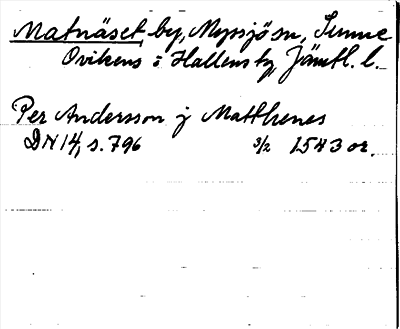 Matnäset by, Myssjö sn, Sunne
Ovikens o Hallens tg, Jämtl. l.
Per Andersson j Matthenes
DN 14, s. 796 3/2 1543 or.